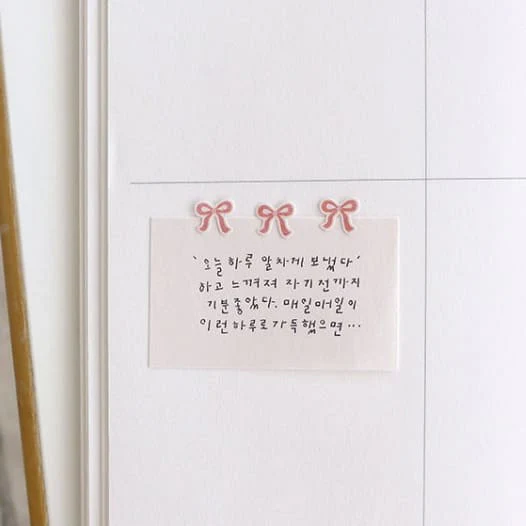 '오늘 하루 알차게 보냈다'
하고 느껴져 자기 전까지
기분 좋았다. 매일매일이
이런 하루로 가득했으면…